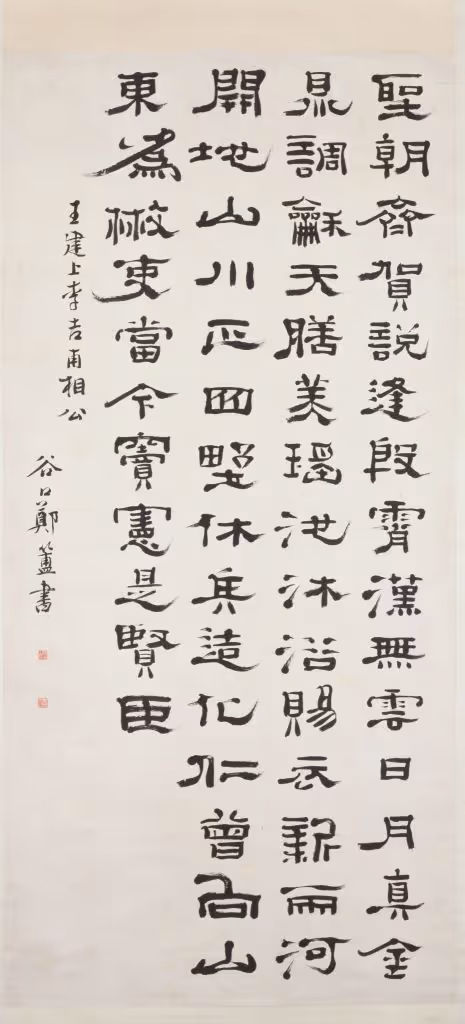 聖朝齊賀說逢殷霄漢無雲日月真金
鼎調龢天膳美瑤池沐浴賜衣新兩河
開地山川正四墅休兵造化仁曾向山
東為散吏當今竇憲是賢臣
王建上李吉甫相公
谷口鄭簠書